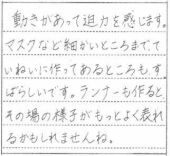 動きがあって迫力を感じます。
マスクなど細かいところまでて
いねいに作ってあるところも、す
ばらしいです。ランナーも作ると
その場の様子がもっとよく表れ
るかもしれませんね。